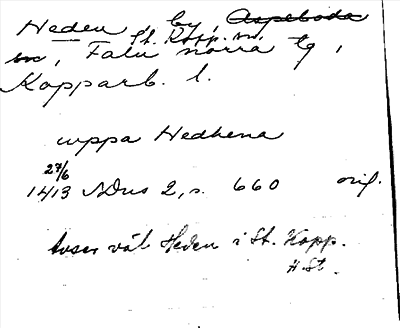 Heden by, Aspeboda
St. Kopp. sn,
sn, Falu norra tg,
Kopparb. l.
uppa Hedhena
27/6
1413 SDns 2, s. 660 orig.
Avser väl Heden i St. Kopp.
H St.